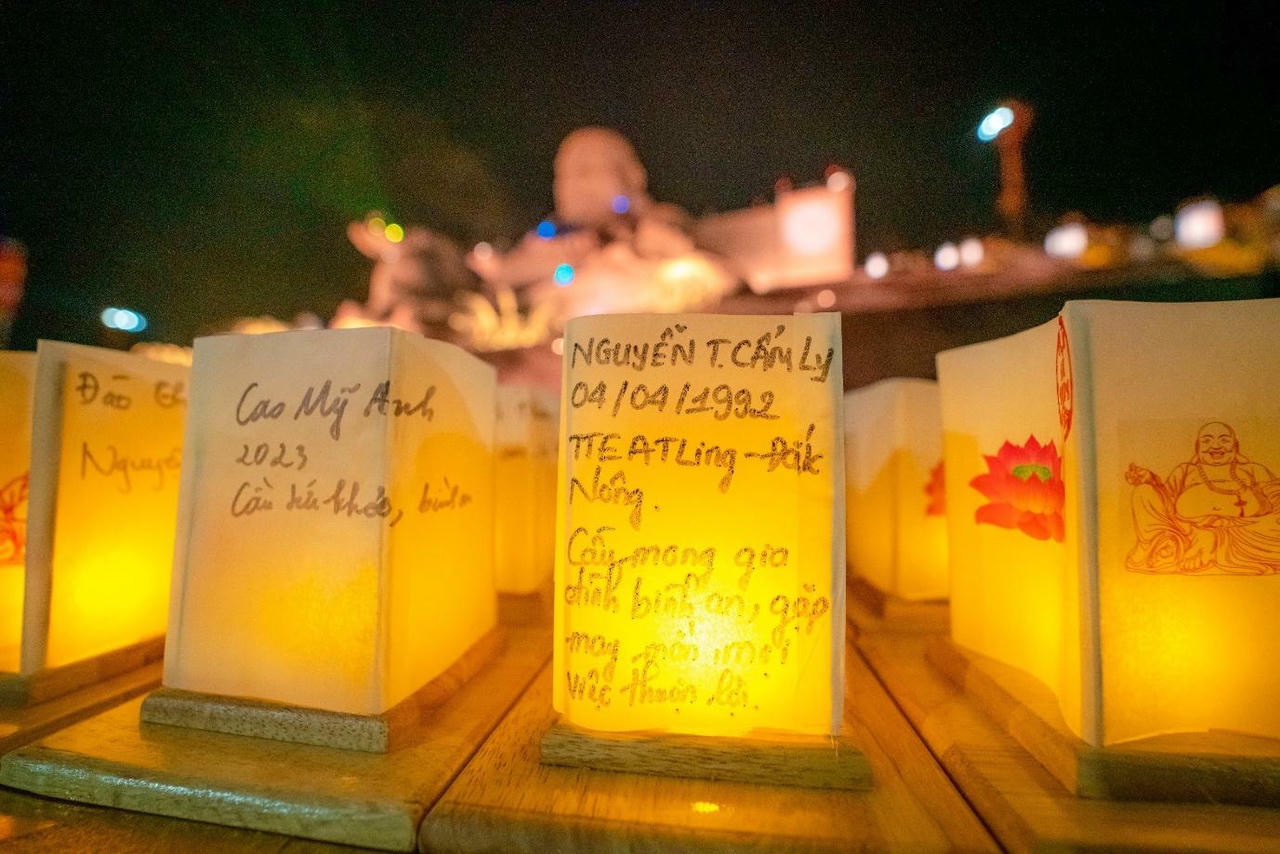 Đào
Nguyễ
Cao Mỹ Anh
2023
Cầu sức khỏe, bình
NGUYỄN T. CẨM Ly
04/04/1992
TTEATLing-Đắk
Nông.
Cầu mong gia
đình bình an, gặp
may mắn mọi
việc thuận lợi.